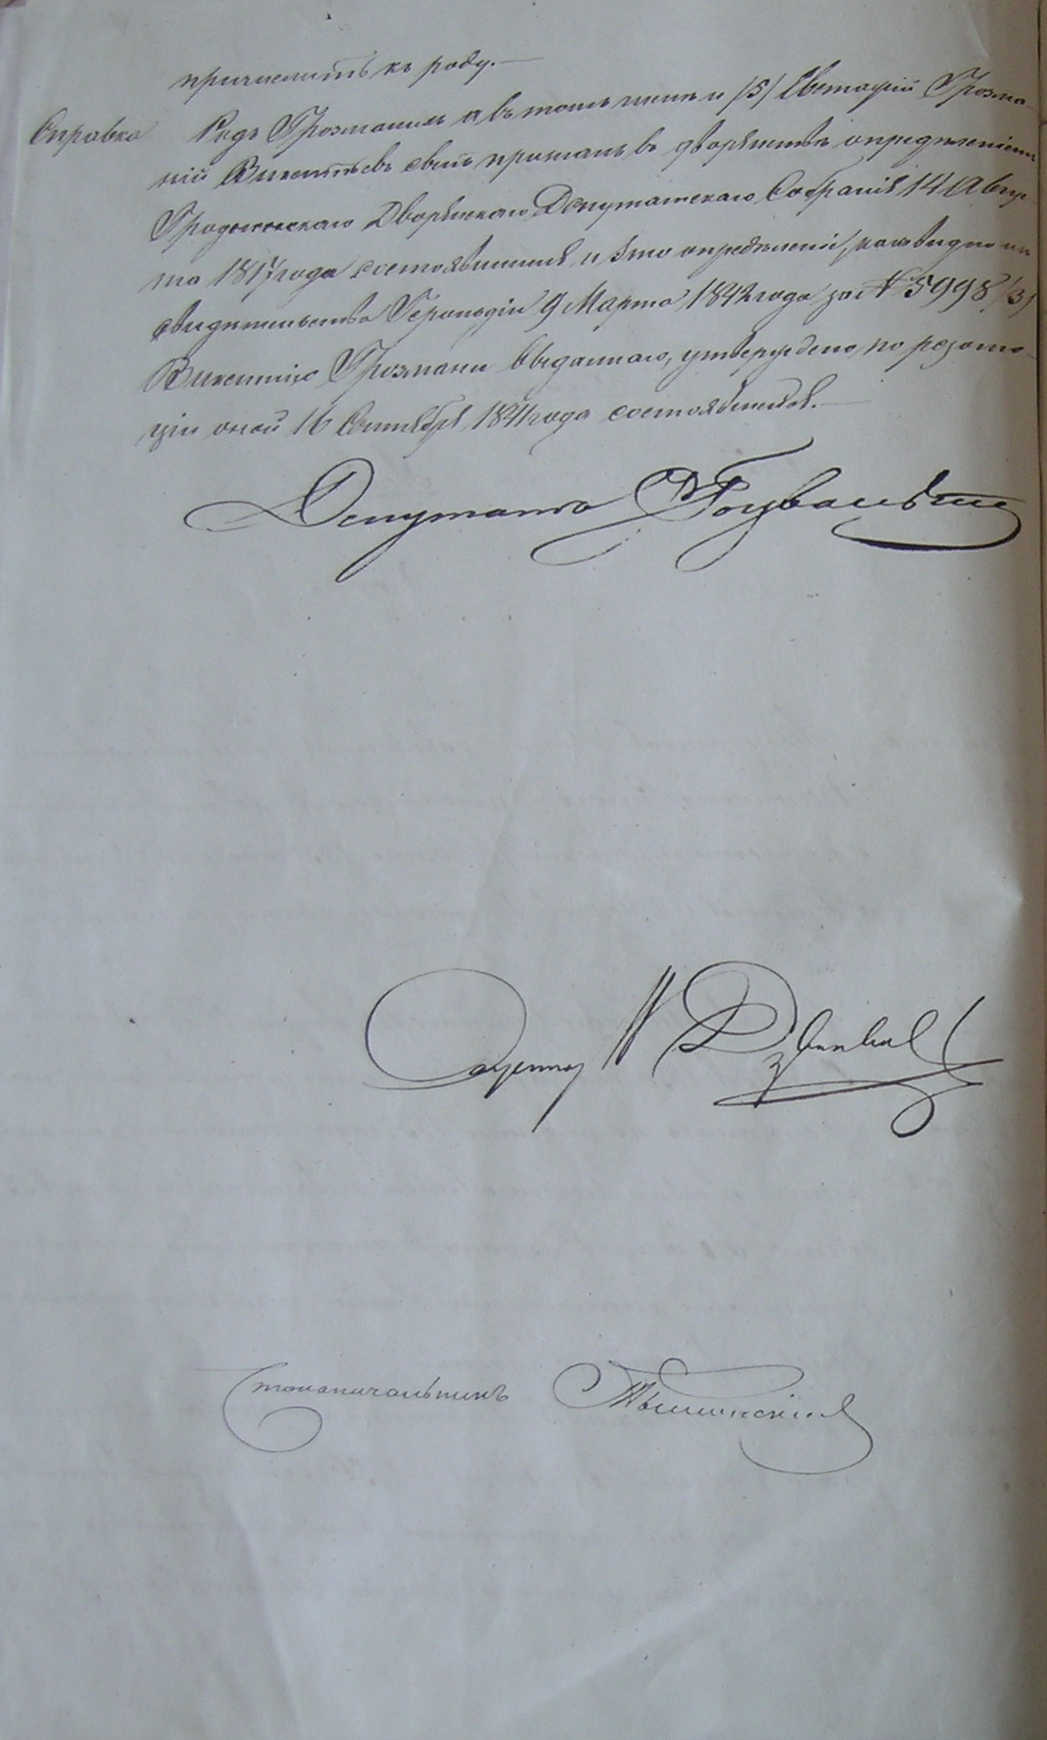 причислить къ роду.—
Справка Родъ Грозмани а въ томъ числѣ и /5/ Евстафій Грозма-
ній Викентьевъ сынъ признанъ въ дворянствѣ опредѣленіемъ
Гродненскаго Дворянскаго Депутатскаго Собранія 14 Авгу-
ста 1817 года состоявшимся, и это опредѣленіе, какъ видно изъ
свидѣтельства Герольдіи 9 Марта 1842 года за № 5998 /3/
Викентію Грозмани выданнаго, утверждено по резолю-
ціи оной 16 Сентября 1841 года состоявшейся.—
Депутатъ
Секретарь
Столоначальникъ